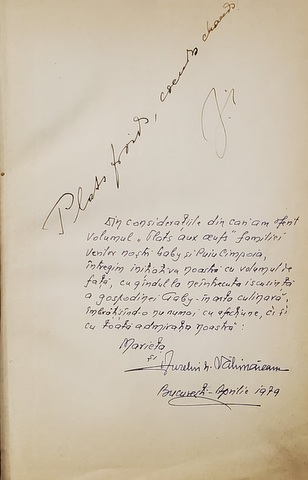 Plats froids, coeurs chauds
Din considerațiile din cari am oferit
volumul „Plats aux œufs" familiei
Gaby și Puiu Cimpoia,
întregim inițiativa noastră cu volumul de
față, cu gândul la neîntrecuta iscusință
a gospodinei Gaby în arta culinară,
îmbrățișând-o nu numai cu afecțiune, ci și
cu toată admirația noastră:
Marieta
și Aureliu N. Vălimăreanu
București - Aprilie 1979